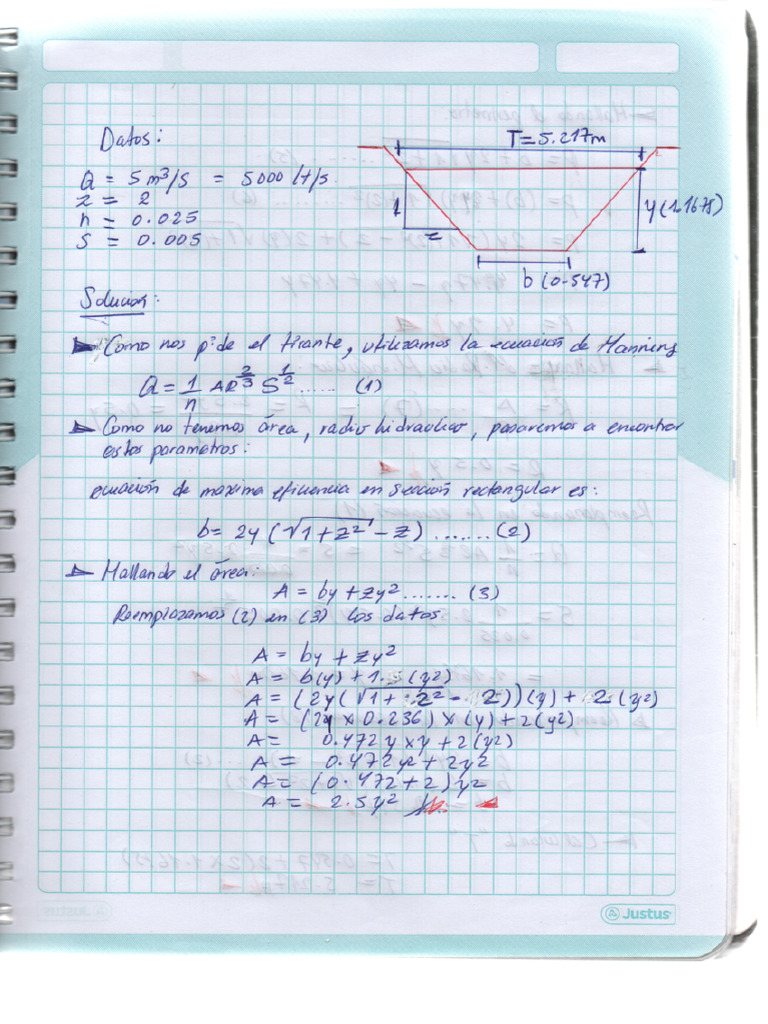 Datos:
T=5.217m
Q = 5 m³/s = 5000 lt/s.
z = 2
n = 0.025
S = 0.005
1
z
y(1.1675)
b (0.547)
Solucion:
Como nos pide el tirante, utilizamos la ecuación de Manning
Q = 1/n AR^2/3 S^1/2 ..... (1)
Como no tenemos área, radio hidraulico, pasaremos a encontrar
estos parametros:
ecuación de maxima eficiencia en sección rectangular es:
b= 2y (√1+z² - z) ...... (2)
Hallando el área:
A = by + zy² ....... (3)
Reemplazamos (2) en (3) los datos
A = by + zy²
A = b(y) + 1. (y²)
A = (2y(√1+ 2² - 2))(y) + 2(y²)
A = (2y x 0.236) x (y) + 2(y²)
A = 0.472 y x y + 2(y²)
A = 0.472y² + 2y²
A = (0.472 + 2)y²
A = 2.5y²
Justus